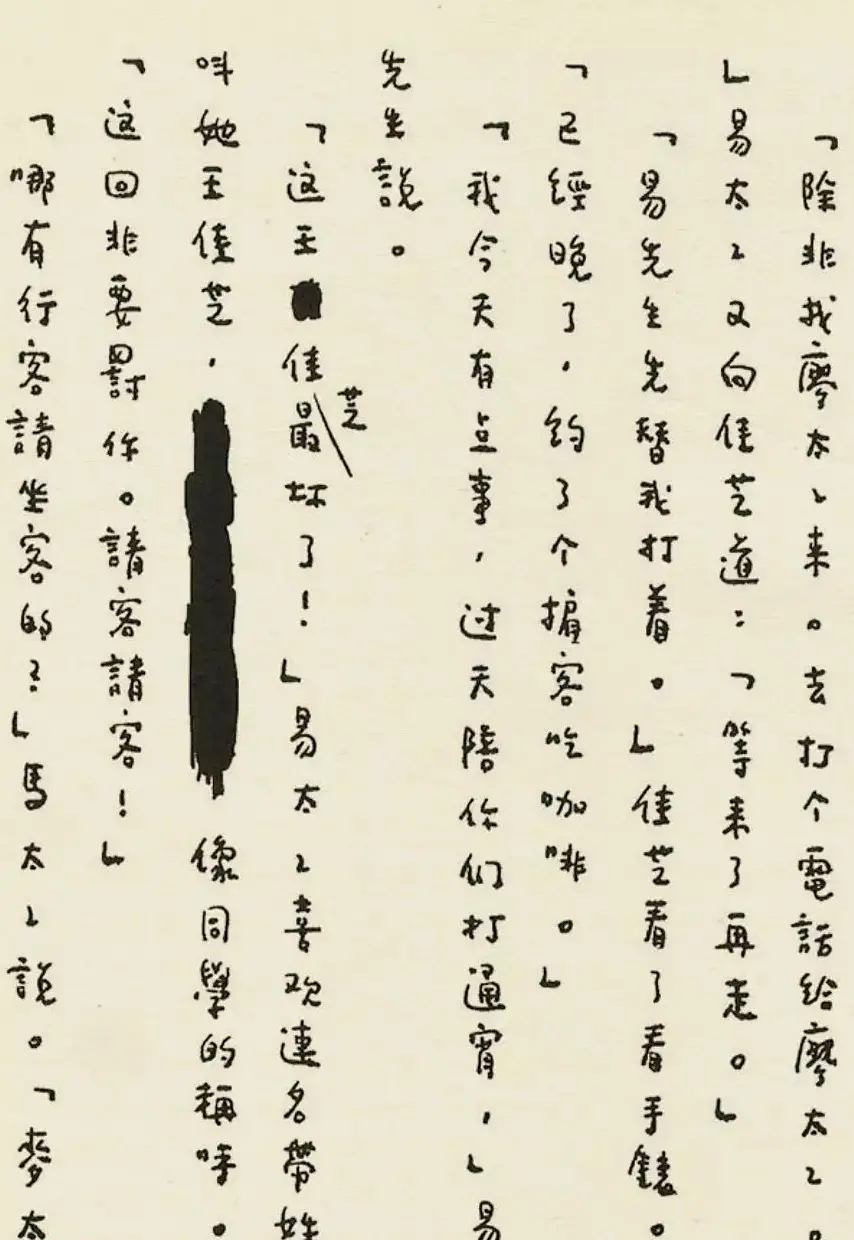 「除非找廖太〻来。去打个電話給廖太〻。
」易太〻又向佳芝道：「等来了再走。」
「易先生先替我打着。」佳芝看了看手錶。
「已經晚了，約了个掮客吃咖啡。」
「我今天有点事，过天陪你们打通宵，」易
先生說。
「这王佳芝最坏了！」易太〻喜欢連名帶姓
叫她王佳芝，像同學的稱呼。
「这回非要罰你。請客請客！」
「哪有行客請坐客的？」馬太〻說。「麥太